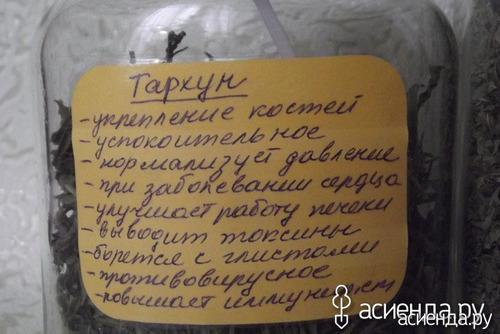 Тархун
-укрепление костей
-успокоительное
-нормализует давление
-при заболевании сердца
-улучшает работу печени
-выводит токсины
-борется с глистами
-противовирусное
-повышает иммунитет
асиенда.ру
асиенда.ру